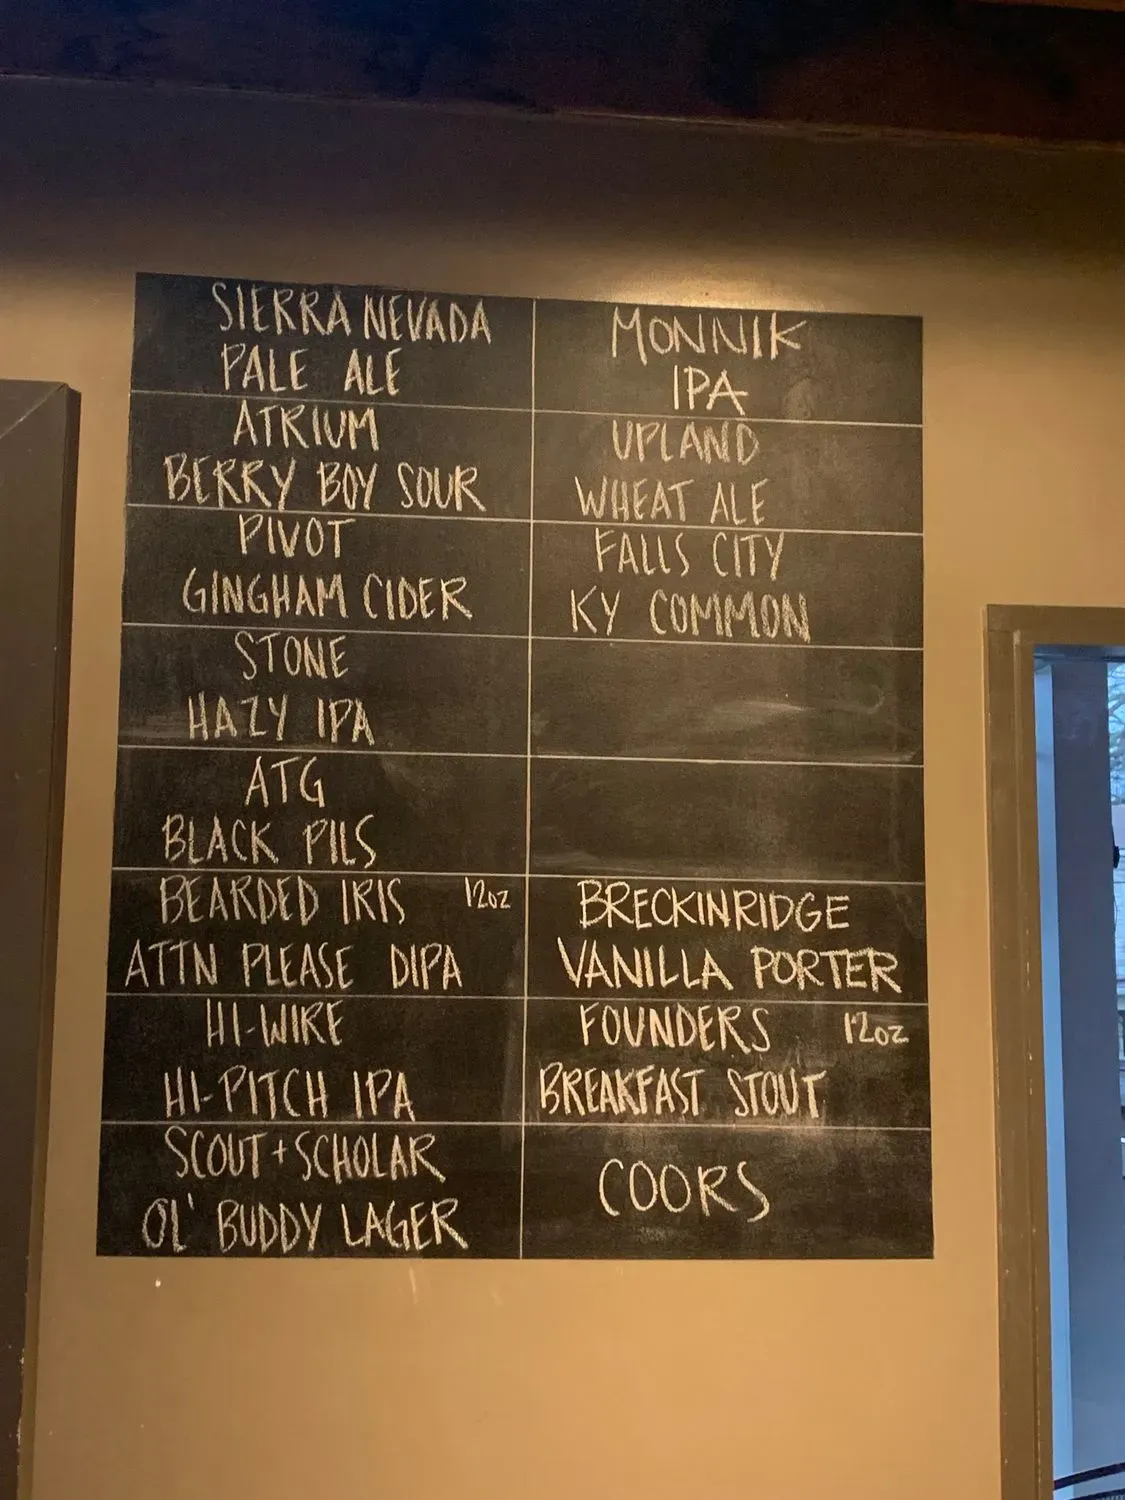 SIERRA NEVADA
PALE ALE
ATRIUM
BERRY BOY SOUR
PIVOT
GINGHAM CIDER
STONE
HAZY IPA
ATG
BLACK PILS
BEARDED IRIS 12oz
ATTN PLEASE DIPA
HI-WIRE
HI-PITCH IPA
SCOUT + SCHOLAR
OL' BUDDY LAGER
MONNIK
IPA
UPLAND
WHEAT ALE
FALLS CITY
KY COMMON
BRECKINRIDGE
VANILLA PORTER
FOUNDERS 12oz
BREAKFAST STOUT
COORS